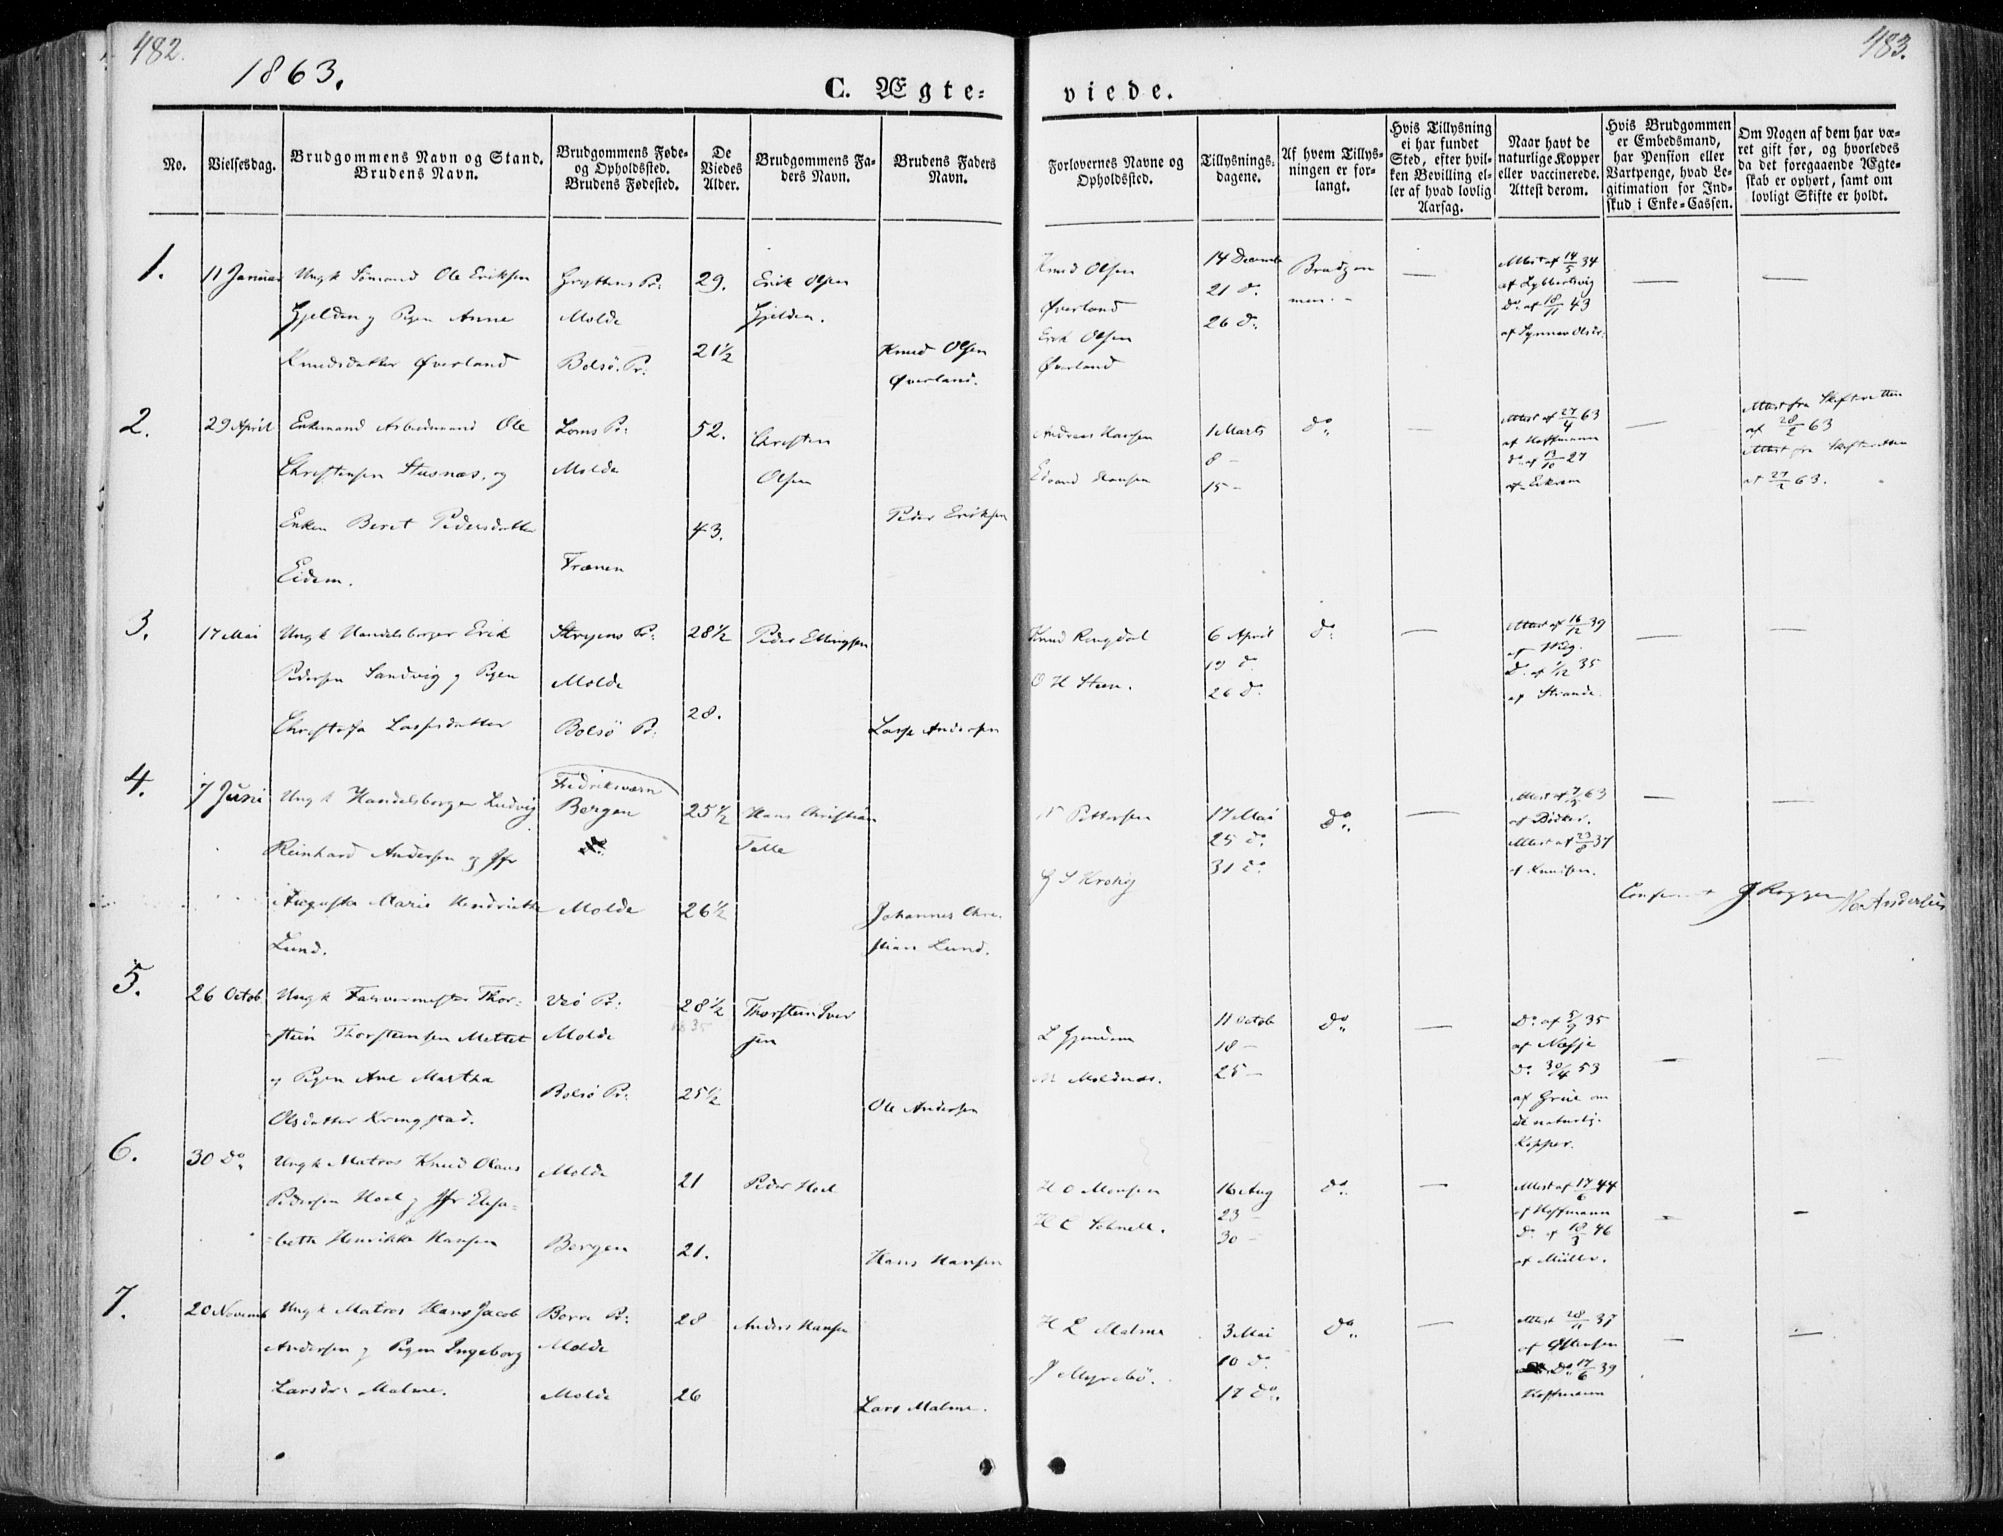 482.
483.
1863.
C. Ægte= viede.
No.
Vielsesdag.
Brudgommens Navn og Stand.
Brudens Navn.
Brudgommens Føde=
og Opholdssted.
Brudens Fødested.
De
Viedes
Alder.
Brudgommens Fa=
ders Navn.
Brudens Faders
Navn.
Forlovernes Navne og
Opholdssted.
Tillysnings=
dagene.
Af hvem Tillys=
ningen er for=
langt.
Hvis Tillysning
ei har fundet
Sted, efter hvil=
ken Bevilling el=
ler af hvad lovlig
Aarsag.
Naar havt de
naturlige Kopper
eller vaccinerede.
Attest derom.
Hvis Brudgommen
er Embedsmand,
har Pension eller
Vartpenge, hvad Le=
gitimation for Ind=
skud i Enke=Cassen.
Om Nogen af dem har væ=
ret gift før, og hvorledes
da det foregaaende Ægte=
skab er ophørt, samt om
lovligt Skifte er holdt.
1.
11 Januar
Ungk Sømand Ole Eriksen
Hjelden og Pigen Anne
Knudsdatter Øverland
Gryttens Pr:
Molde
Bolsø Pr:
29.
21½
Erik Olsen
Hjelden.
Knud Olsen
Øverland.
Knud Olsen
Øverland
Erik Olsen
Øverland
14 Decemb
21 do.
26 do.
Brudgom
men. -
—
Attest af 14/5 34
af Lybbertsvig
Do. af 18/11 43
af Synnev Olsdr.
—
—
2.
29 April
Enkemand Arbeidsmand Ole
Christensen Stusnæs, og
Enken Beret Pedersdatter
Eidem.
Loms Pr:
Molde
Frænen
52.
43.
Christen
Olsen
Peder Eriksen
Andreas Hansen
Edvard Hansen
1 Marts
8 -
15 -
do.
—
Attest af 27/4 63
af Hoffmann
do. af 13/10 27
af Eikrem
—
Attest fra Skifteretten
af 28/2 63
Attest fra Skifteretten
af 27/2 63.
3.
17 Mai
Ungk Handelsborger Erik
Pedersen Sandvig og Pigen
Christofa Lassesdatter
Stryens Pr:
Molde
Bolsø Pr:
28½
28.
Peder Ellingsen
Lasse Andersen
Knud Ringdal
O H Steen.
6 April
19 do.
26 do.
do.
—
Attest af 16/12 39
af Wiig.
Do. af 1/12 35
af Strande.
—
—
4.
7 Juni
Ungk Handelsborger Ludvig
Reinhard Andersen og Jfr
Augusta Marie Hendriette
Lund.
Fredriksværn
Bergen
Molde
25½
26½
Hans Christian
Telle
Johannes Chri-
stian Lund.
N Pettersen
17 Mai
25 do.
31 do.
Do.
—
Attest af 7/5 63
Attest af 23/8 37
af Knudsen.
—
—
5.
26 Octob
Ungk Farvermester Thor=
stein Thorsteinsen Mettet
og Pigen Ane Martha
Olsdatter Kringstad.
Veø Pr:
Molde
Bolsø Pr:
28½
1835
25½
Thorstein Iver
sen
Ole Andersen
L Gjendem
M Moldnæs.
11 Octob
18 -
25 -
Do.
—
Do. af 5/9 35
af Næsje
Do. 30/4 53
af Grüe om
de naturlig.
Kopper.
—
—
6.
30 Do.
Ungk Matros Knud Olaus
Pedersen Hoel og Jfr Elisa=
=beth Henrikka Hansen
Molde
Bergen
21
21.
Peder Hoel
Hans Hansen
H O Monsen
H C Schnell.
16 Aug
23 -
30 -
Do.
—
Attest af 17/6 44
af Hoffmann
Do. af 18/3 46
af Müller.
—
—
7.
20 Novemb
Ungk Matros Hans Jacob
Andersen og Pigen Ingeborg
Larsdr: Malme.
Borre Pr:
Molde
Molde
28
26
Anders Hansen
Lars Malme.
H L Malme
J Myrebø.
3 Mai
10 do.
17 do.
Do.
—
Attest 28/11 37
Do. 17/6 39
Hoffmann
—
—